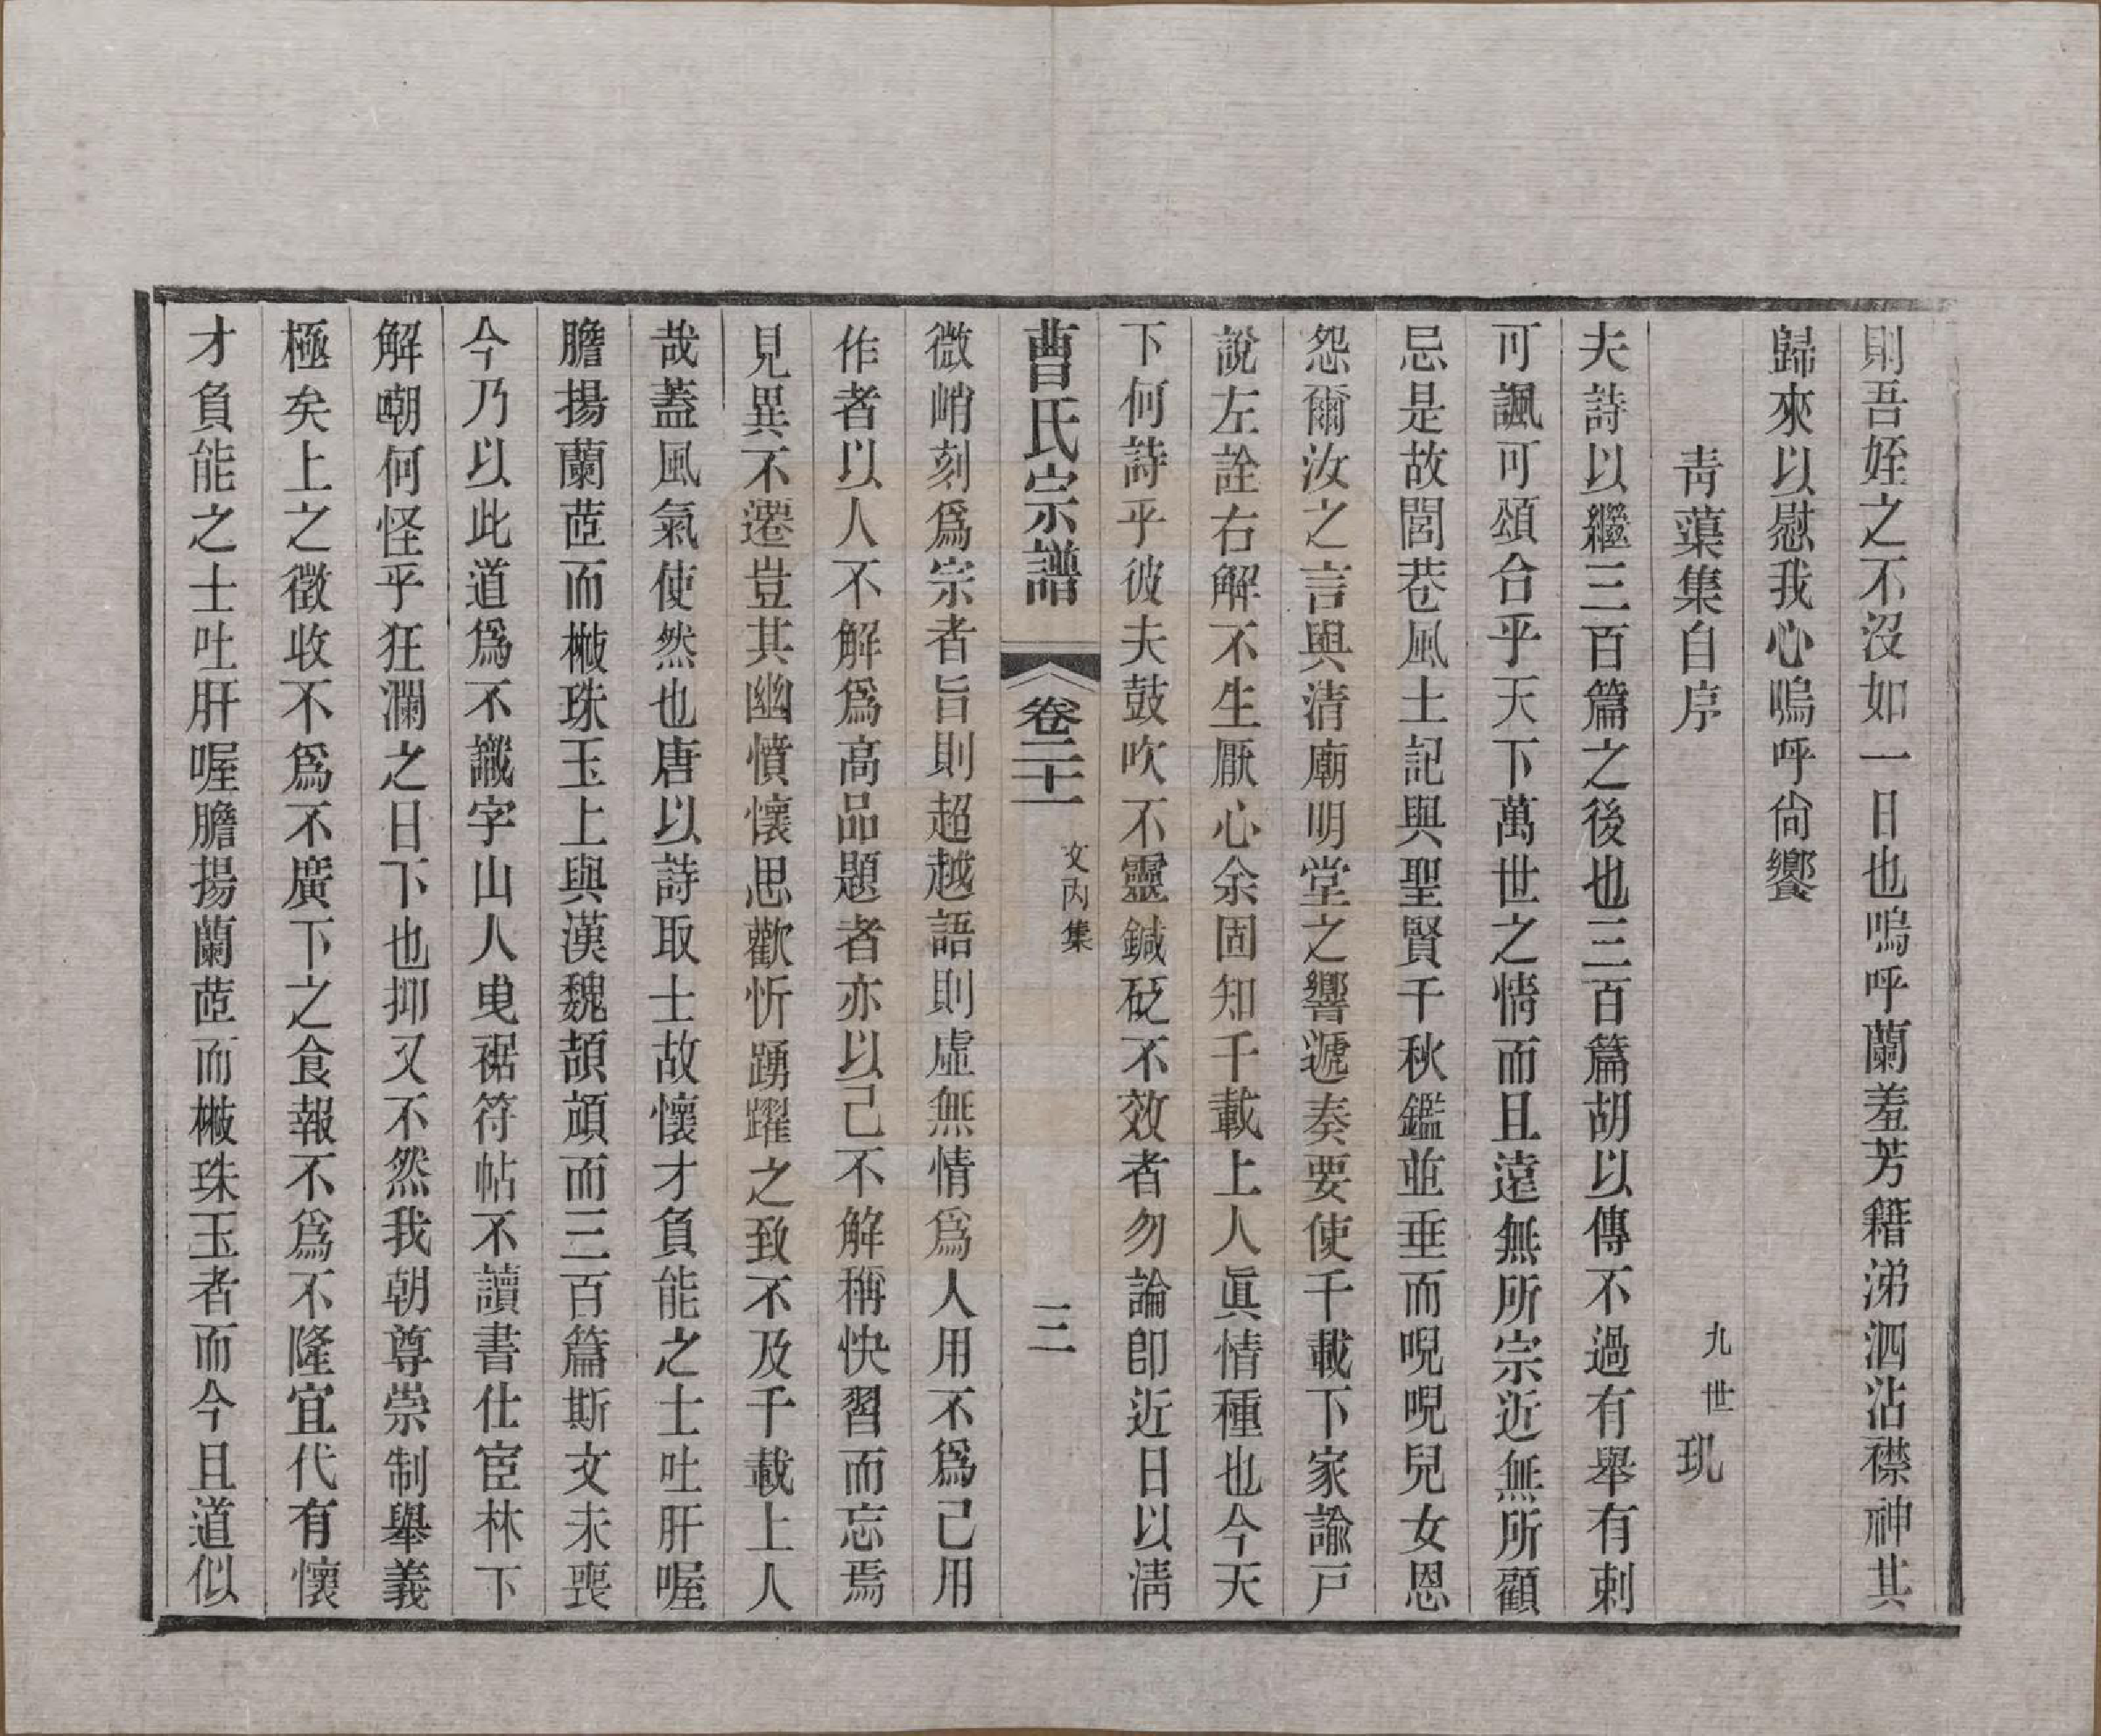 則吾姪之不沒如一日也嗚呼蘭羞芳籍涕泗沾襟神其
歸來以慰我心嗚呼尙饗
青蕖集自序
九世
玑
夫詩以繼三百篇之後也三百篇胡以傳不過有舉有刺
可諷可頌合乎天下萬世之情而且遠無所宗近無所顧
忌是故閭巷風土記與聖賢千秋鑑並垂而呢呢兒女恩
怨爾汝之言與清廟明堂之響遞奏要使千載下家諭戸
說左詮右解不生厭心余固知千載上人眞情種也今天
下何詩乎彼夫鼓吹不靈鍼砭不效者勿論卽近日以清
曹氏宗譜
卷二十一
文內集
三
微峭刻爲宗者旨則超越語則虛無情爲人用不爲己用
作者以人不解爲高品題者亦以己不解稱快習而忘焉
見異不遷豈其幽憤懷思歡忻踴躍之致不及千載上人
哉蓋風氣使然也唐以詩取士故懷才負能之士吐肝喔
膽揚蘭茝而樕珠玉上與漢魏頡頏而三百篇斯文未喪
今乃以此道爲不識字山人曳裾符帖不讀書仕宦林下
解嘲何怪乎狂瀾之日下也抑又不然我朝尊崇制舉義
極矣上之徵收不爲不廣下之食報不爲不隆宜代有懷
才負能之士吐肝喔膽揚蘭茝而樕珠玉者而今且道似